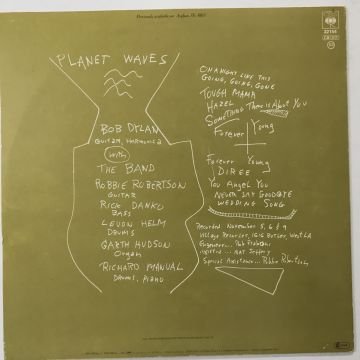 Previously available on Asylum
CBS
32154
PLANET WAVES
BOB DYLAN
GUITAR, HARMONICA
with
THE BAND
ROBBIE ROBERTSON
GUITAR
RICK DANKO
BASS
LEVON HELM
DRUMS
GARTH HUDSON
Organ
RICHARD MANUAL
DRUMS, PIANO
ON A NIGHT LIKE THIS
GOING, GOING, GONE
TOUGH MAMA
HAZEL
SOMETHING There is About You
Forever Young
Forever Young
DIRGE
You Angel You
NEVER SAY GOODBYE
WEDDING SONG
Recorded November 5, 6 & 9
Village Recorder, 1616 Butler, West LA
Engineer... Rob Fraboni
Assisted... NAT Jeffrey
Special Assistance... Robbie Robertson